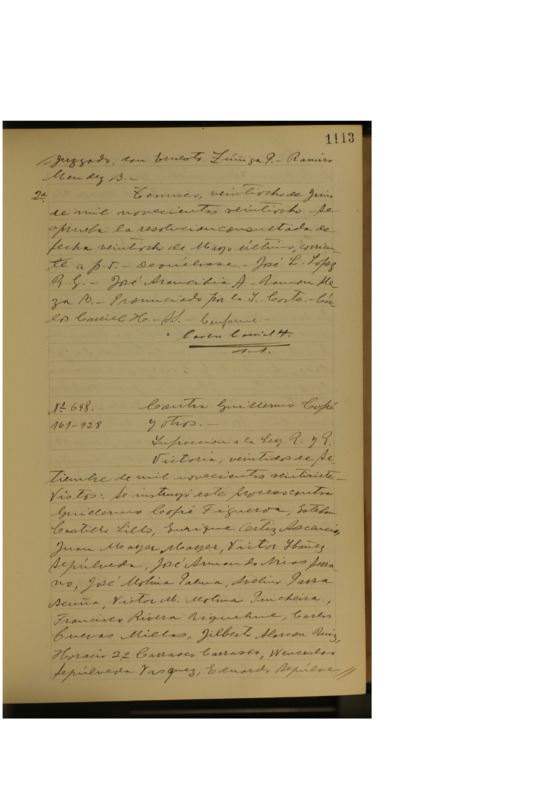 1113
Juzgado, don Ernesto Zúñiga P. - Ramiro
Mendez B. -
2a Temuco, veintiocho de Junio
de mil novecientos veintiocho. - Se
aprueba la resolucion consultada de
fecha veintiocho de Mayo último, corrien-
te a f. 5. - Devuélvase. - José L. Lopez
R. G. - José Arancibia A. - Ramon Me-
za B. - Pronunciado por la I. Corte. - Cár-
los H. - Conforme. -
Nº 698. Contra Guillermo Cofré
161-928 y otros. -
Infraccion a la Ley R. y R.
Victoria, veintidos de Se-
tiembre de mil novecientos veintisiete. -
Vistos: Se instruyó este proceso contra
Guillermo Cofré Figueroa, Esteban
Castillo Lillo, Enrique Ortiz Ascencio,
Juan Mayer Mayer, Victor Ybáñez
Sepúlveda, José Armando Rivas
José Molina Palma, Avelino Parra
Acuña, Victor M. Molina Pincheira,
Francisco Rivera Riquelme, Carlos
Cuevas Millas, Jilberto Alarcon Ruiz,
Horacio 2º Carrasco Carrasco, Wenceslao
Sepúlveda Vasquez, Eduardo Sepúlve-